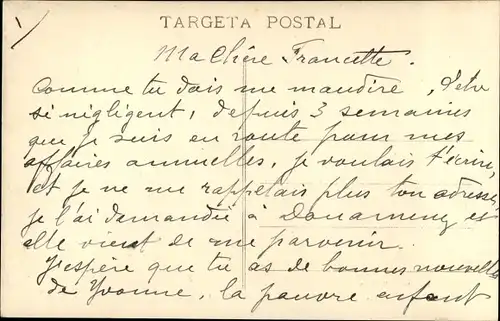 TARGETA POSTAL
Ma Chère Francette.
Comme tu dois me maudire, d'etre
si négligent, depuis 3 semaines
que je suis en route pour mes
affaires annuelles, je voulais t'écrire,
et je ne me rappelais plus ton adresse,
je l'ai demandée à Douarnenez et
elle vient de me parvenir.
J'espère que tu as de bonnes nouvelles
de Yvonne, la pauvre enfant